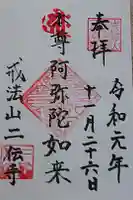 奉拝
令和元年
十一月二十六日
本尊阿弥陀如来
戒法山二伝寺